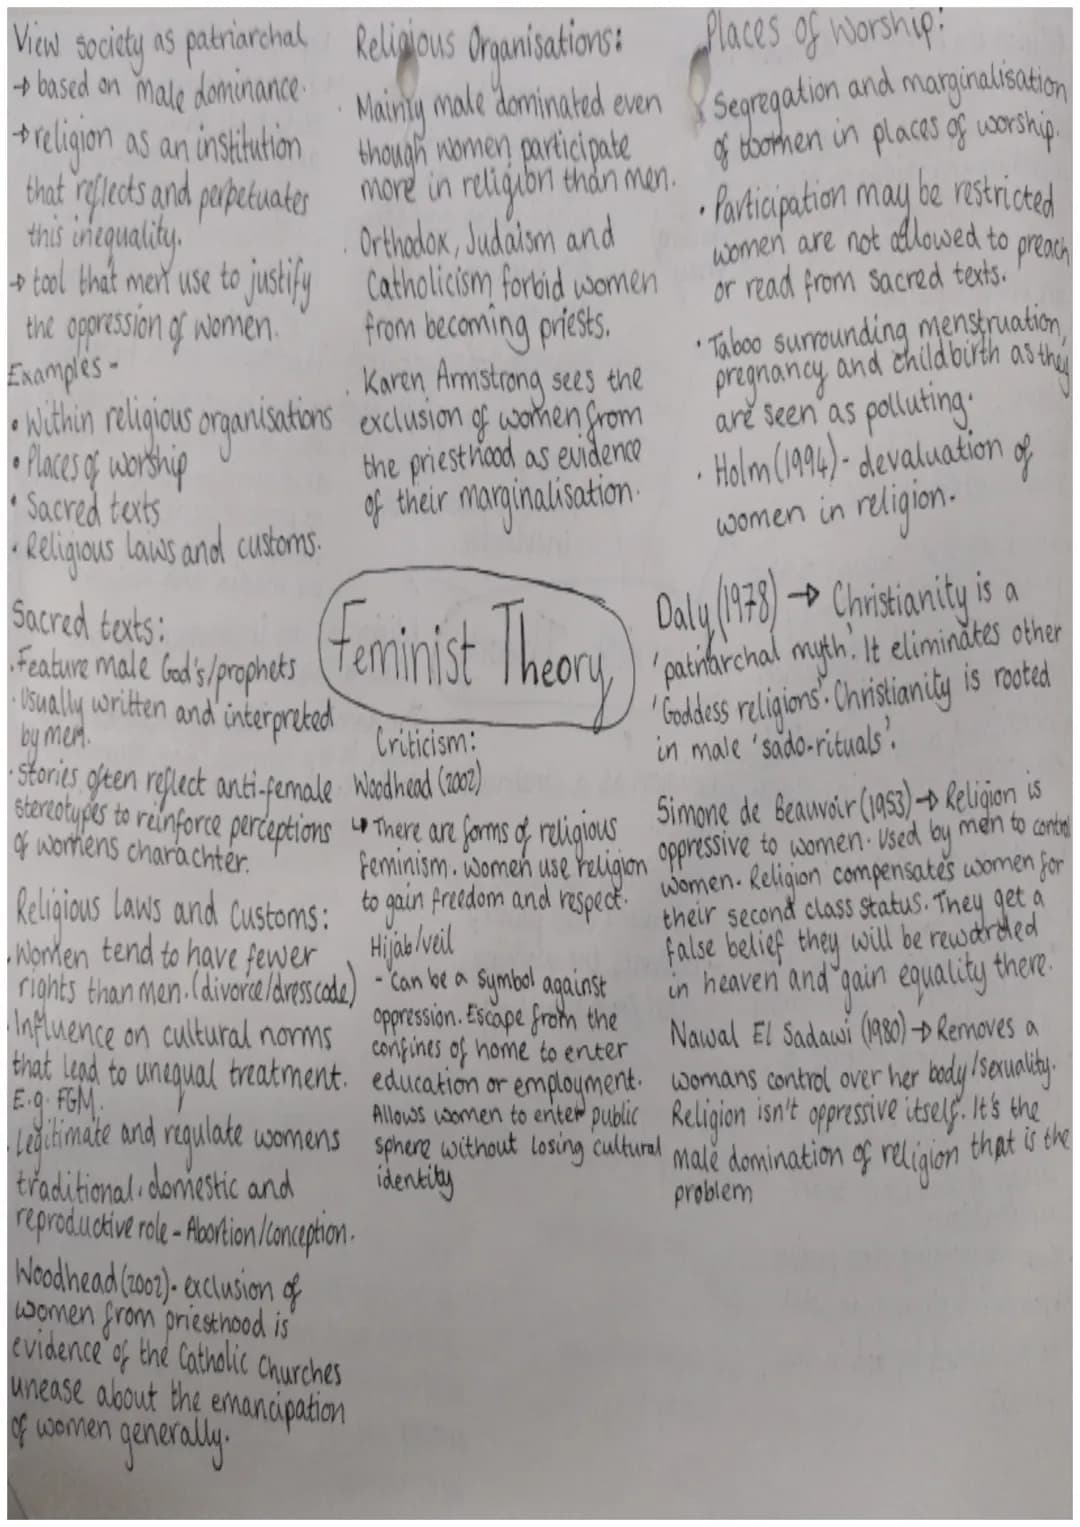 View society as patriarchal
→ based on male dominance.
→ religion as an institution
that reflects and perpetuates
this inequality.
→ tool that men use to justify
the oppression of women.
Examples -
• Within religious organisations
• Places of worship
• Sacred texts
• Religious laws and customs.
Religious Organisations:
· Mainly male dominated even
though women participate
more in religion than men.
· Orthodox, Judaism and
Catholicism forbid women
from becoming priests.
· Karen Armstrong sees the
exclusion of women from
the priesthood as evidence
of their marginalisation.
Places of Worship:
· Segregation and marginalisation
of women in places of worship.
· Participation may be restricted
women are not allowed to preach
or read from sacred texts.
· Taboo surrounding menstruation,
pregnancy and childbirth as they
are seen as polluting.
· Holm (1994) - devaluation of
women in religion.
Feminist Theory
Sacred texts:
· Feature male God's/prophets
· Usually written and interpreted
by men.
· Stories often reflect anti-female
stereotypes to reinforce perceptions
of womens charachter.
Religious Laws and Customs:
· Women tend to have fewer
rights than men. (divorce/dress code)
· Influence on cultural norms
that lead to unequal treatment.
E.g. FGM.
· Legitimate and regulate womens
traditional, domestic and
reproductive role - Abortion/Conception.
Woodhead (2002) - exclusion of
women from priesthood is
evidence of the Catholic Churches
unease about the emancipation
of women generally.
Criticism:
Woodhead (2002)
↳ There are forms of religious
feminism. women use religion
to gain freedom and respect.
Hijab/veil
- Can be a symbol against
oppression. Escape from the
confines of home to enter
education or employment.
Allows women to enter public
sphere without losing cultural
identity
Daly (1978) → Christianity is a
'patriarchal myth'. It eliminates other
'Goddess religions'. Christianity is rooted
in male 'sado-rituals'.
Simone de Beauvoir (1953) → Religion is
oppressive to women. Used by men to control
women. Religion compensates women for
their second class status. They get a
false belief they will be rewarded
in heaven and gain equality there.
Nawal El Sadawi (1980) → Removes a
womans control over her body/sexuality.
Religion isn't oppressive itself. It's the
male domination of religion that is the
problem